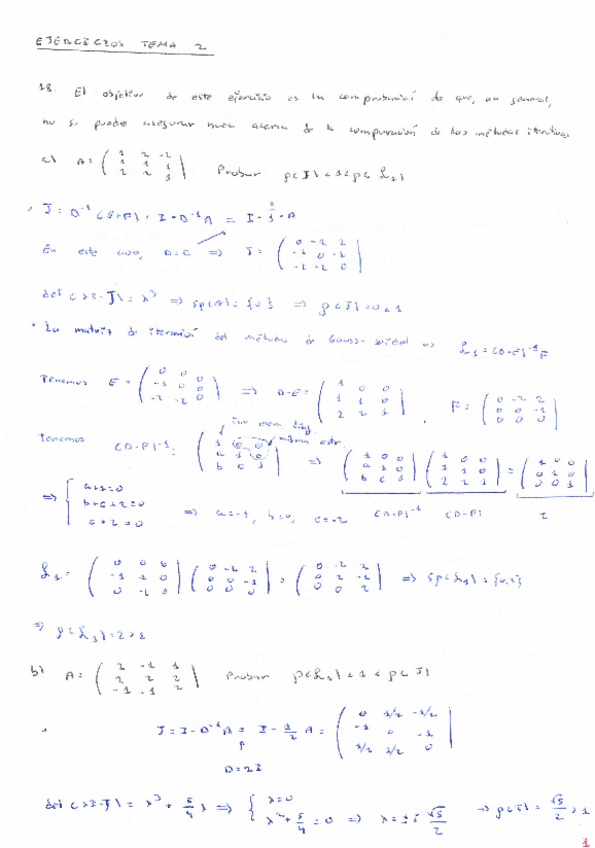 EJERCICIOS TEMA 2
18. El objetivo de este ejercicio es la comprobación de que, en general,
no se puede asegurar nada acerca de la comparación de los métodos iterativos
a) A = ( 1 2 -2 ; 1 1 1 ; 2 2 1 ) Probar ρ(J) < 1 < ρ(L₁)
· J = D⁻¹(E+F) = I - D⁻¹A = I - A
En este caso, D = I ⇒ J = ( 0 -2 2 ; -1 0 -1 ; -2 -2 0 )
det(λI - J) = λ³ ⇒ sp(J) = {0} ⇒ ρ(J) = 0 < 1
· La matriz de iteración del método de Gauss-Seidel es L₁ = (D-E)⁻¹F
Tenemos E = ( 0 0 0 ; -1 0 0 ; -2 -2 0 ) ⇒ D-E = ( 1 0 0 ; 1 1 0 ; 2 2 1 ), F = ( 0 -2 2 ; 0 0 -1 ; 0 0 0 )
Tenemos (D-E)⁻¹ = ( 1 0 0 ; a 1 0 ; b c 1 ) ⇒ ( 1 0 0 ; a 1 0 ; b c 1 ) ( 1 0 0 ; 1 1 0 ; 2 2 1 ) = ( 1 0 0 ; 0 1 0 ; 0 0 1 )
(D-E)⁻¹ (D-E) I
⇒ { a+1=0 ; b+c+2=0 ; c+2=0 ⇒ a=-1, b=0, c=-2
L₁ = ( 0 0 0 ; -1 1 0 ; 0 -2 0 ) ( 0 -2 2 ; 0 0 -1 ; 0 0 0 ) = ( 0 -2 2 ; 0 2 -2 ; 0 0 2 ) ⇒ sp(L₁) = {0,2}
⇒ ρ(L₁) = 2 > 1
b) A = ( 2 -1 1 ; 2 2 2 ; -1 -1 2 ) Probar ρ(L₁) < 1 < ρ(J)
· J = I - D⁻¹A = I - 1/2 A = ( 0 1/2 -1/2 ; -1 0 -1 ; 1/2 1/2 0 )
D = 2I
det(λI - J) = λ³ + 5/4 λ ⇒ { λ=0 ; λ² + 5/4 = 0 ⇒ λ = ± i √5/2 ⇒ ρ(J) = √5/2 > 1
1